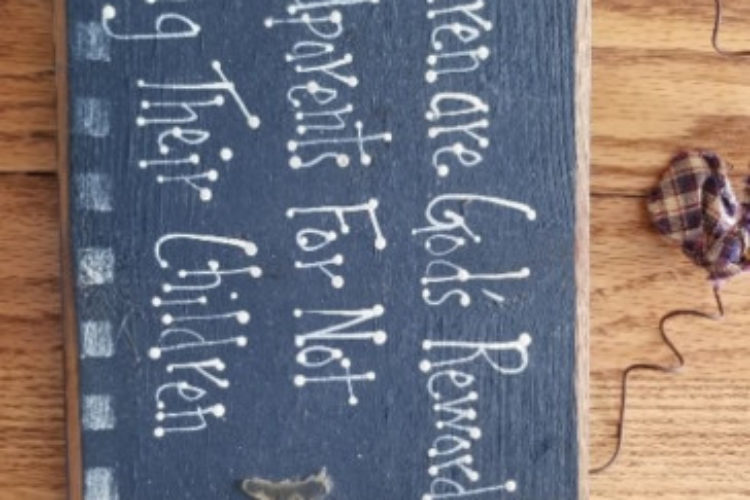 ren are God's Reward
dparents For Not
g Their Children